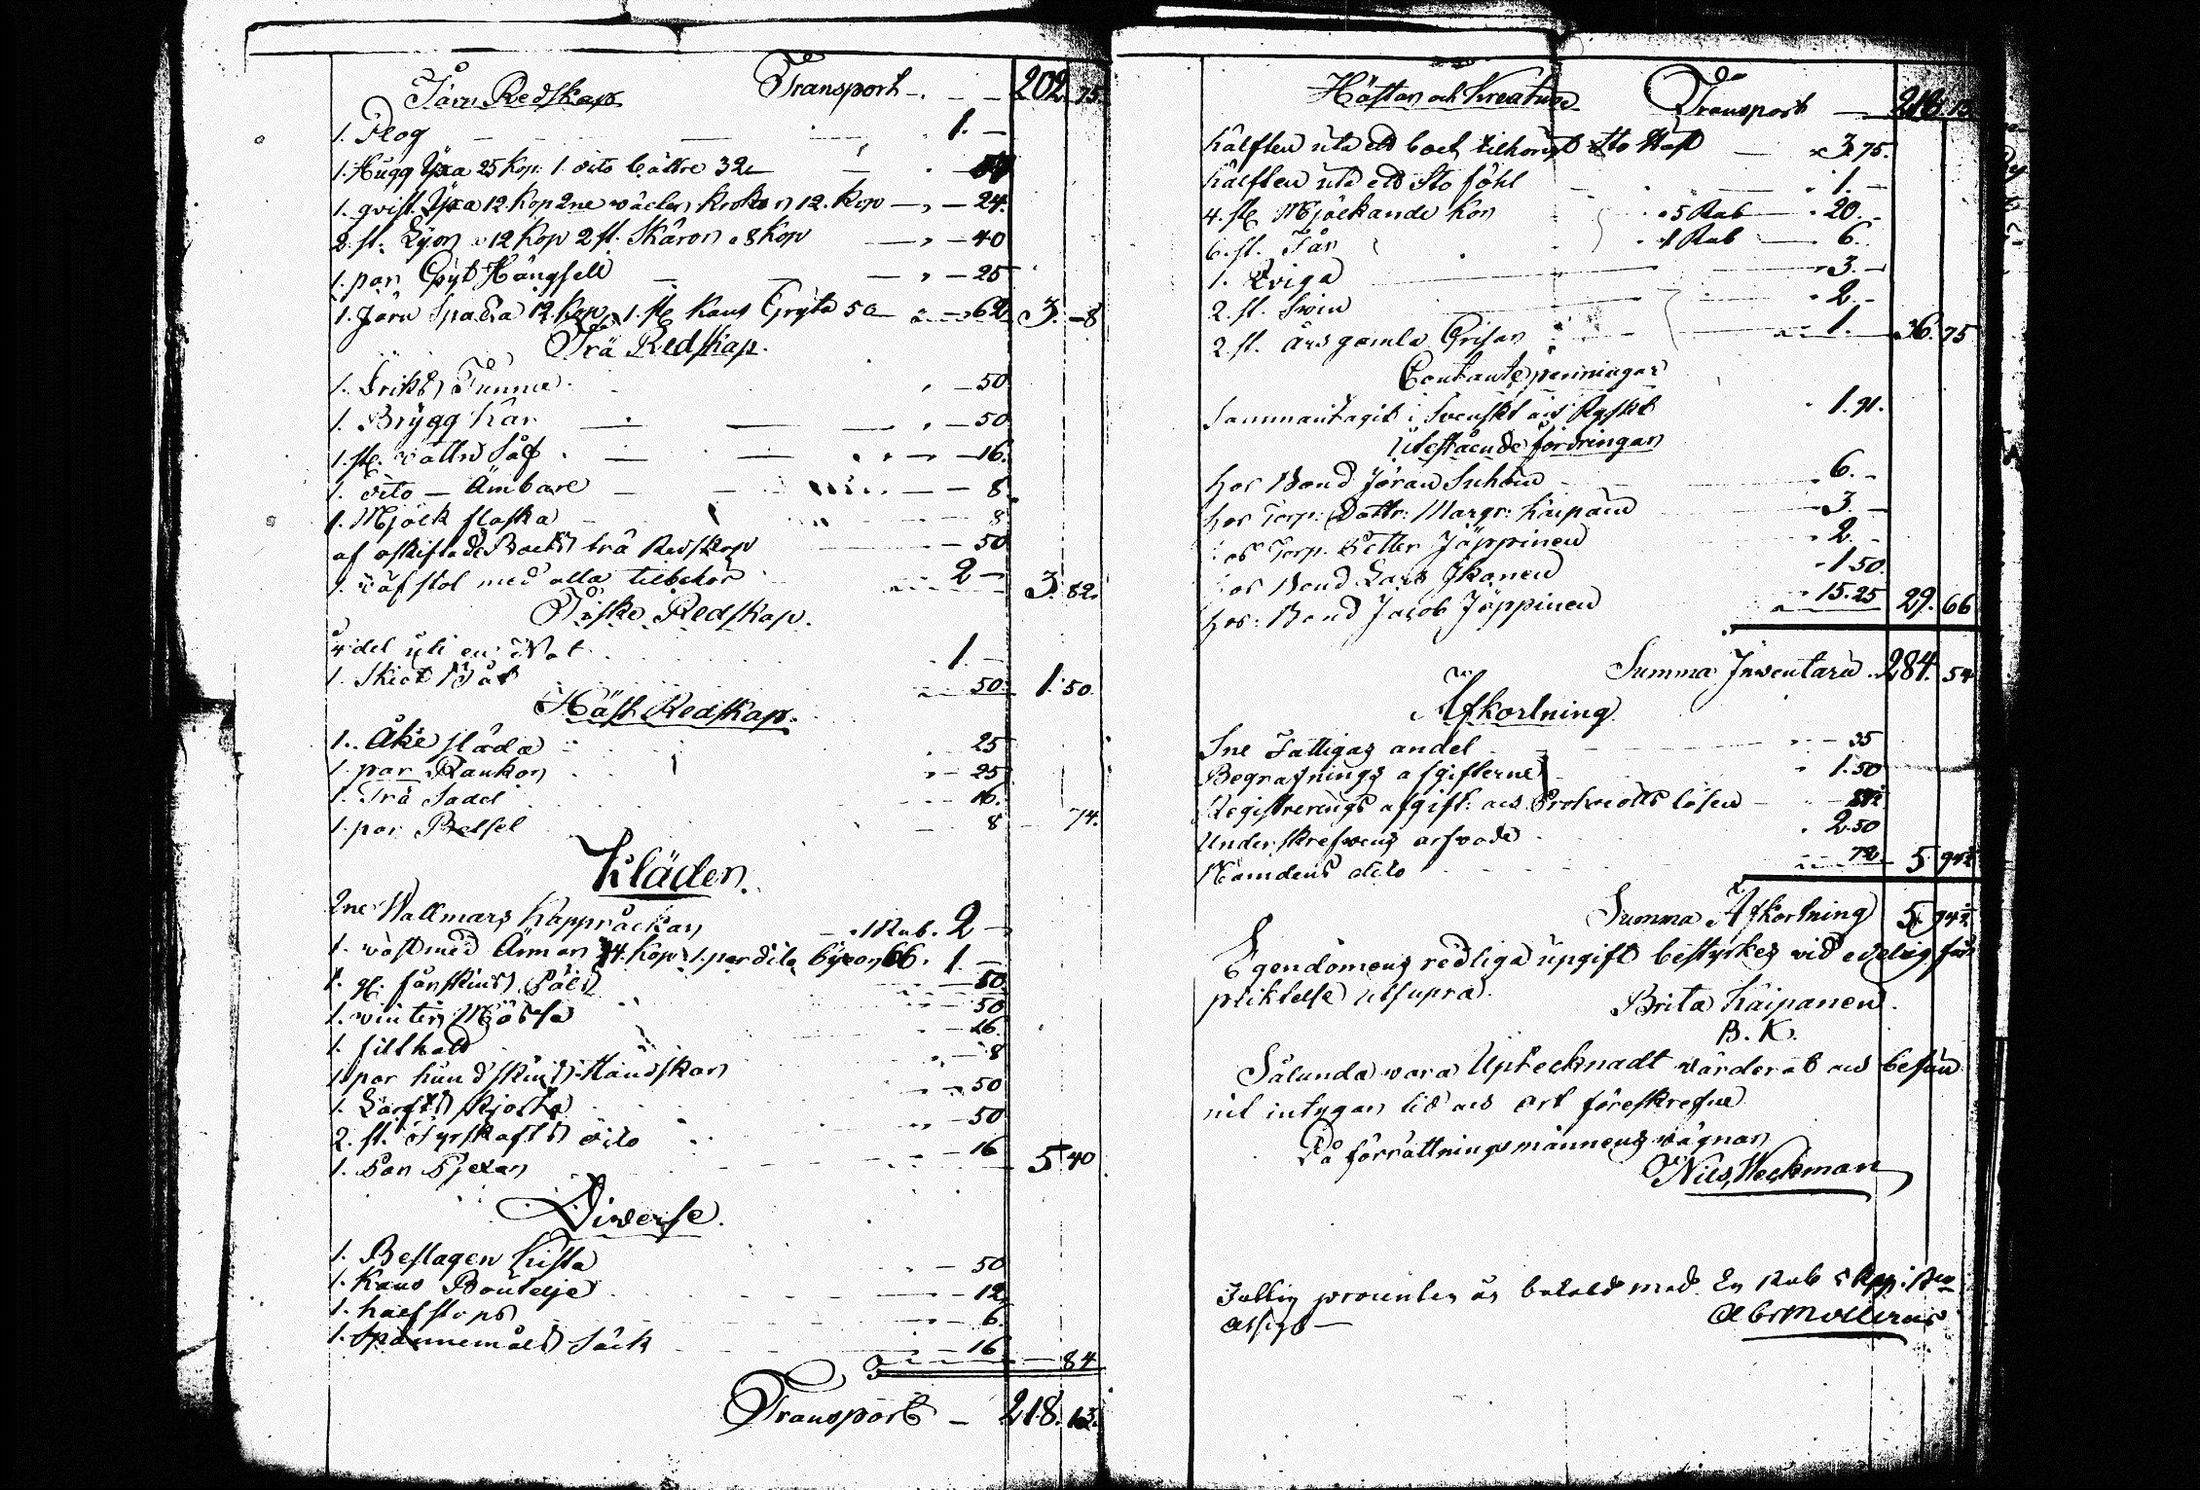 Järn Redskap Transport - 202. 75.
1. Plog 1. -
1. Hugg Yxa 25 kop: 1. dito bättre 32 - 57
1. qvist Yxa 12 kop 2ne wäclen krokar 12. kop - 24.
2. st. Lijor 12 kop 2 st. Skäror 8 kop - 40
1. par Gryt Hängsell - 25
1. Järn Spada 12 kop, 1. st. Kans Gryta 50 - 62 3. -8
Trä Redskap.
1. Tunna - 50
1. Brygg kar - 50
1. st. watten Så - 16.
1. dito - Ämbare - 8
1. Mjölk flaska - 8
af trä Redskap - 50
1. wäfstol med alla tilbehör 2 - 3. 82.
Fiske Redskap.
4 del uti en Not 1. -
1. Båt 50. 1. 50.
Häst Redskap.
1. Åke släda 25
1. par Rankor 25
1. Trä Sadel 16.
1. par Betsel 8 74.
Kläder.
2ne Wallmars Kappråckar 1 Rub. 2 -
1. wäst med Ärmar 34. kop 1. par dito byxor 66. 1. -
1. gl. fårskins Päls 50
1. winter Mössa 50
1. filthatt 16.
1 par hundskins Handskar 8
1. Lärfts skjorta 50
2. st. dito 50
1. Par Pjexor 16 5 40
Diverse.
1. Beslagen kista - 50
1. Kans Bouteje - 12
1. half stops - 6.
1. Spannemåls Säck - 16 - 84
Transport - 218. 13.
Hästar och Kreatur Transport - 218. 13.
hälften uti ett boet tilhörigt Sto Häst - 3. 75.
hälften uti ett Sto föhl - 1. -
4. st. Mjölkande Kor 5 Rub - 20. -
6. st. Får 1 Rub - 6.
1. Qviga 3. -
2. st. Swin 2. -
2. st. års gamla Grisar 1. - 36. 75
Contante penningar
Sammantagit i Svenskt och Ryskt 1. 91.
Utestående fordringar
hos Bond Jöran Suhoin 6. -
hos Torp: Dottr: Margr: Käipäin 3. -
hos Torp. Petter Jäppinen 2. -
hos Bond Lars Ikonen 1 50.
hos: Bond Jacob Jäppinen 15. 25 29. 66
Summa Inventarii 284. 54
Afkortning
Sne Fattigas andel 35
Begrafnings afgifterne 1. 50
Registrerings afgift och Protocolls lösen
Underskrefwens arfvode 2. 50
Nämdens dito 72 5 94½
Summa Afkortning 5 94½
Egendomens redliga upgift bestyrkes vid edelig för-
pliktelse utsupra.
Brita Käipänen.
B. K.
Sålunda vara Uptecknadt värderat och befun-
nit intygar tid och ort föreskrefne
På förrättningsmännens vägnar
Nils Weckman
Fattig procenten är betald med En Rub